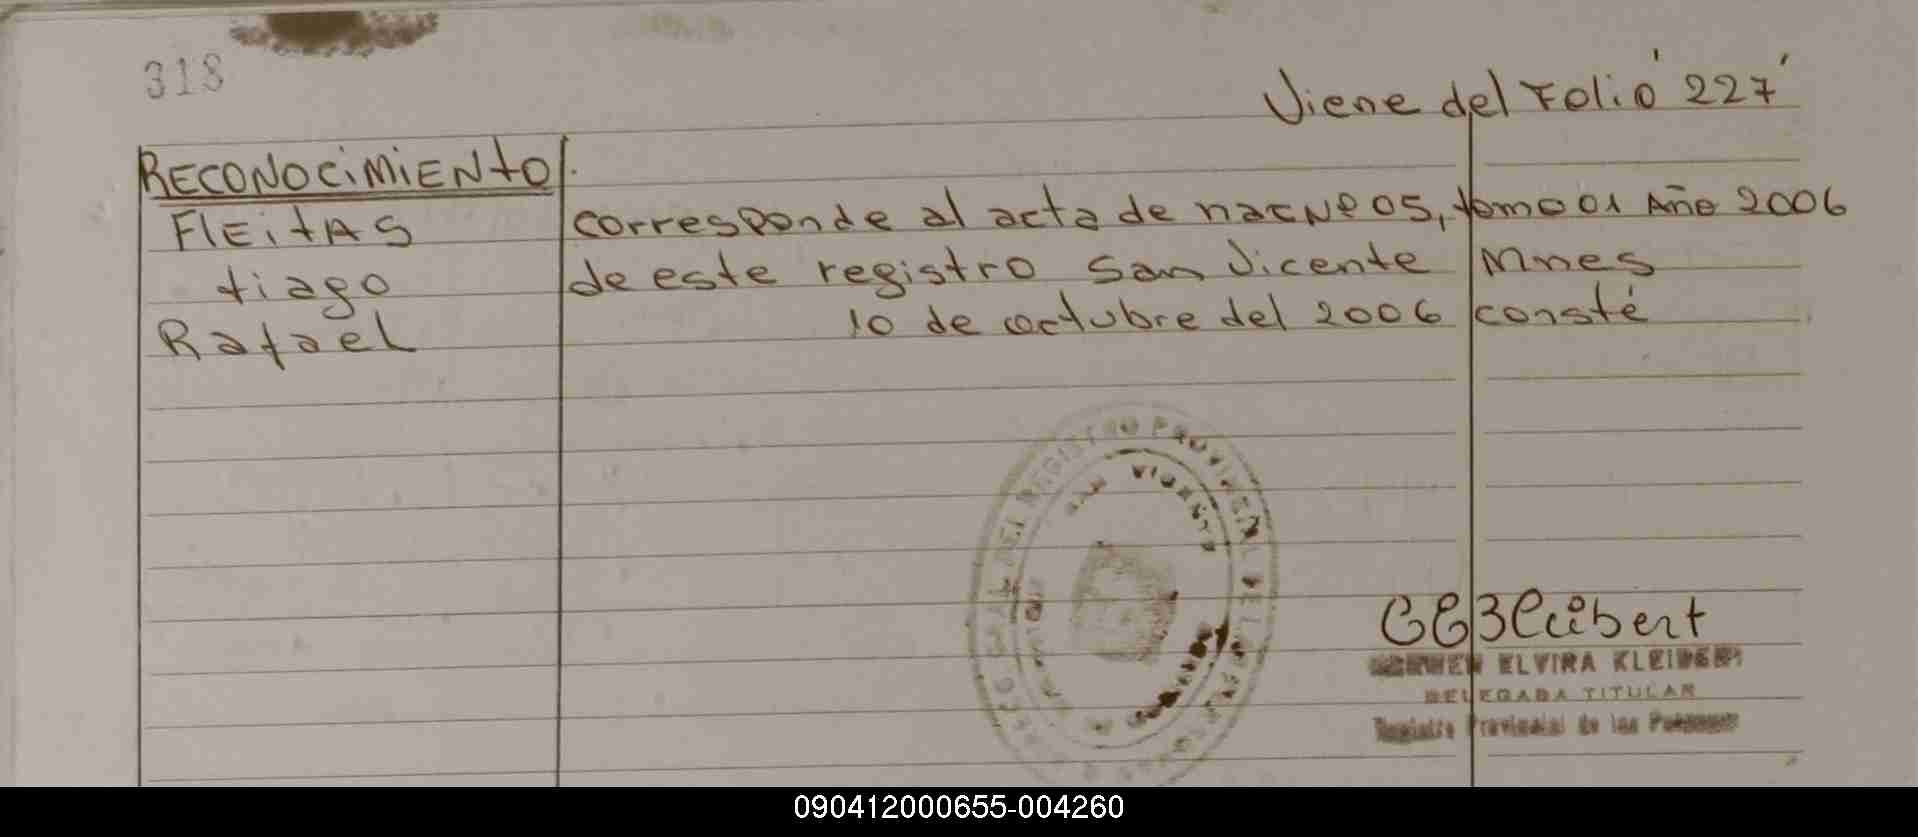 318
Viene del Folió 227'
RECONOCIMIENTO.
FlEitAS
tiago
Rafael
corresponde al acta de nac Nº 05, tomo 01 Año 2006
de este registro San Vicente Mnes
10 de octubre del 2006 consté
REGISTRO PROVINCIAL DE LAS
SAN VICENTE
ELVIRA KLEIBERT
DELEGADA TITULAR
Registro Provincial de las Personas
090412000655-004260